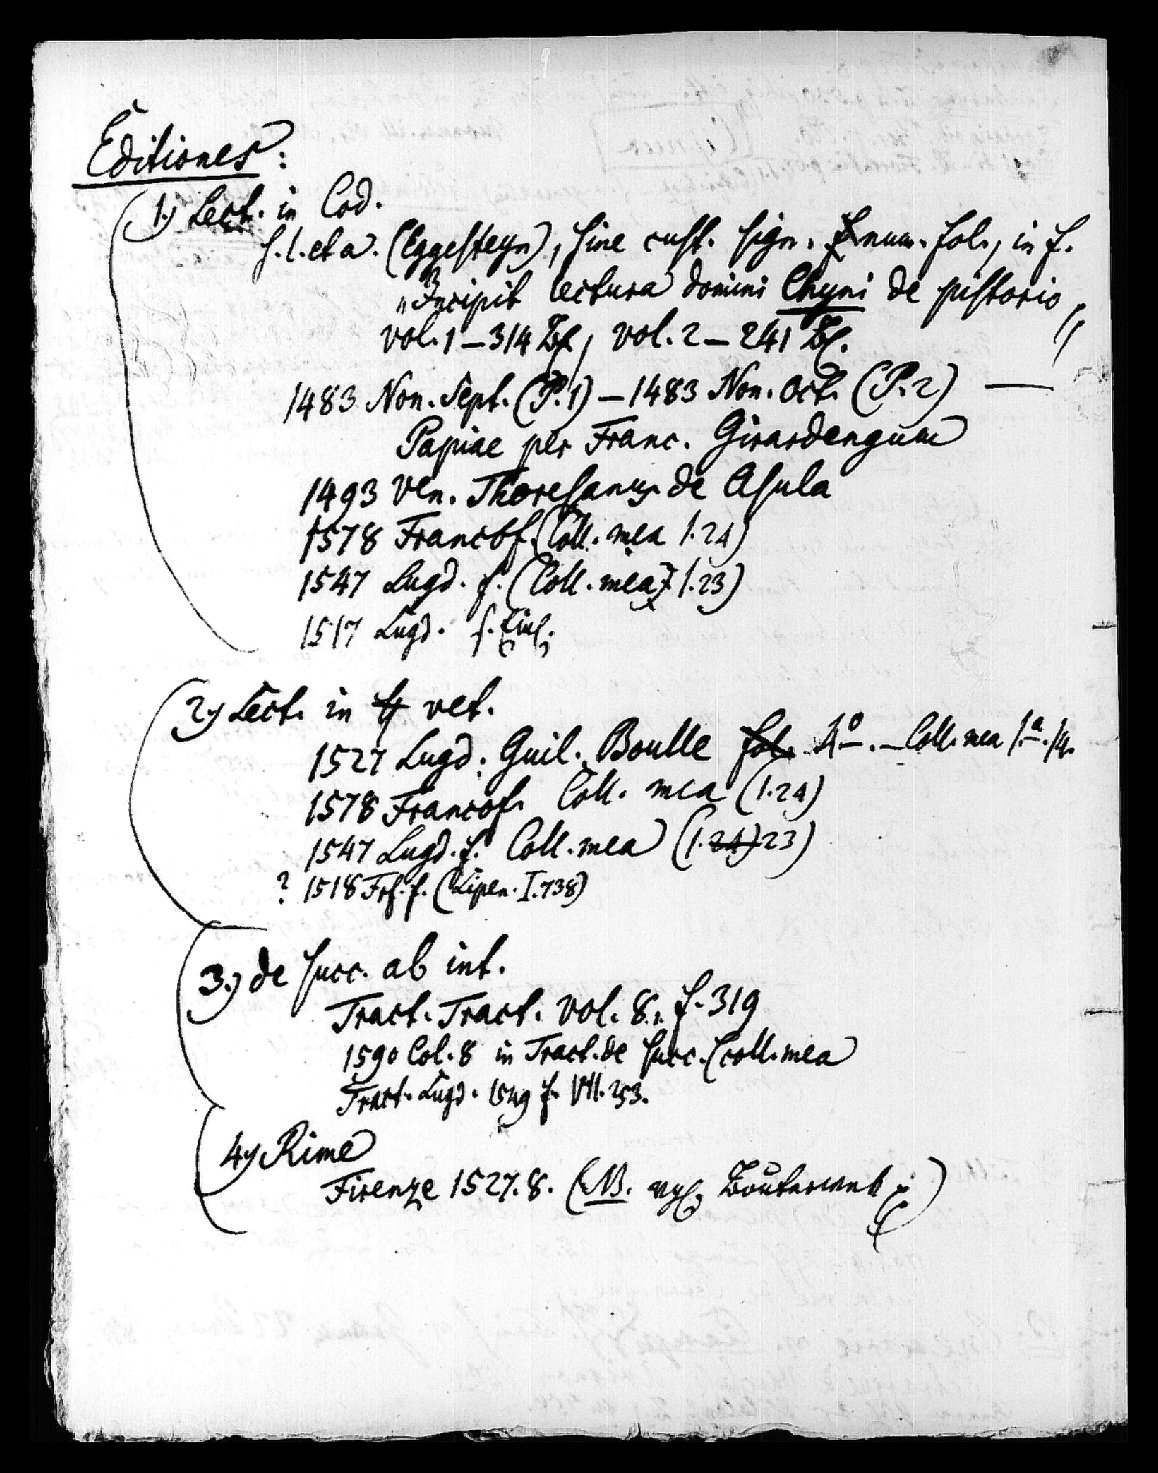 Editiones:
1.) Lect. in Cod.
s. l. et a. (Eggesteyn), sine cust. sign. & num. fol., in f.
"Incipit lectura domini Chyni de pistorio,"
vol. 1 – 314 Bl., vol. 2 – 241 Bl.
1483 Non. Sept. (P. 1) – 1483 Non. Oct. (P. 2) —
Papiae per Franc. Girardengum
1493 Ven. Thoresanus de Asula
1578 Francof. (Coll. mea 1.24)
1547 Lugd. f. (Coll. mea 1.23)
1517 Lugd. f.
2.) Lect. in ff vet.
1527 Lugd. Guil. Boulle fol. 4º. – Coll. mea 1.a.14.
1578 Francof. Coll. mea (1.24)
1547 Lugd. f. Coll. mea (1.24) 23)
? 1518 Frf. f. (Lipen. I. 738)
3.) de succ. ab int.
Tract. Tract. vol. 8. f. 319
1590 Col. 8 in Tract. de succ. (coll. mea
Tract. Lugd. 1549 f. VII. 253.
4.) Rime
Firenze 1527. 8. (NB. vgl. Bouterwek)